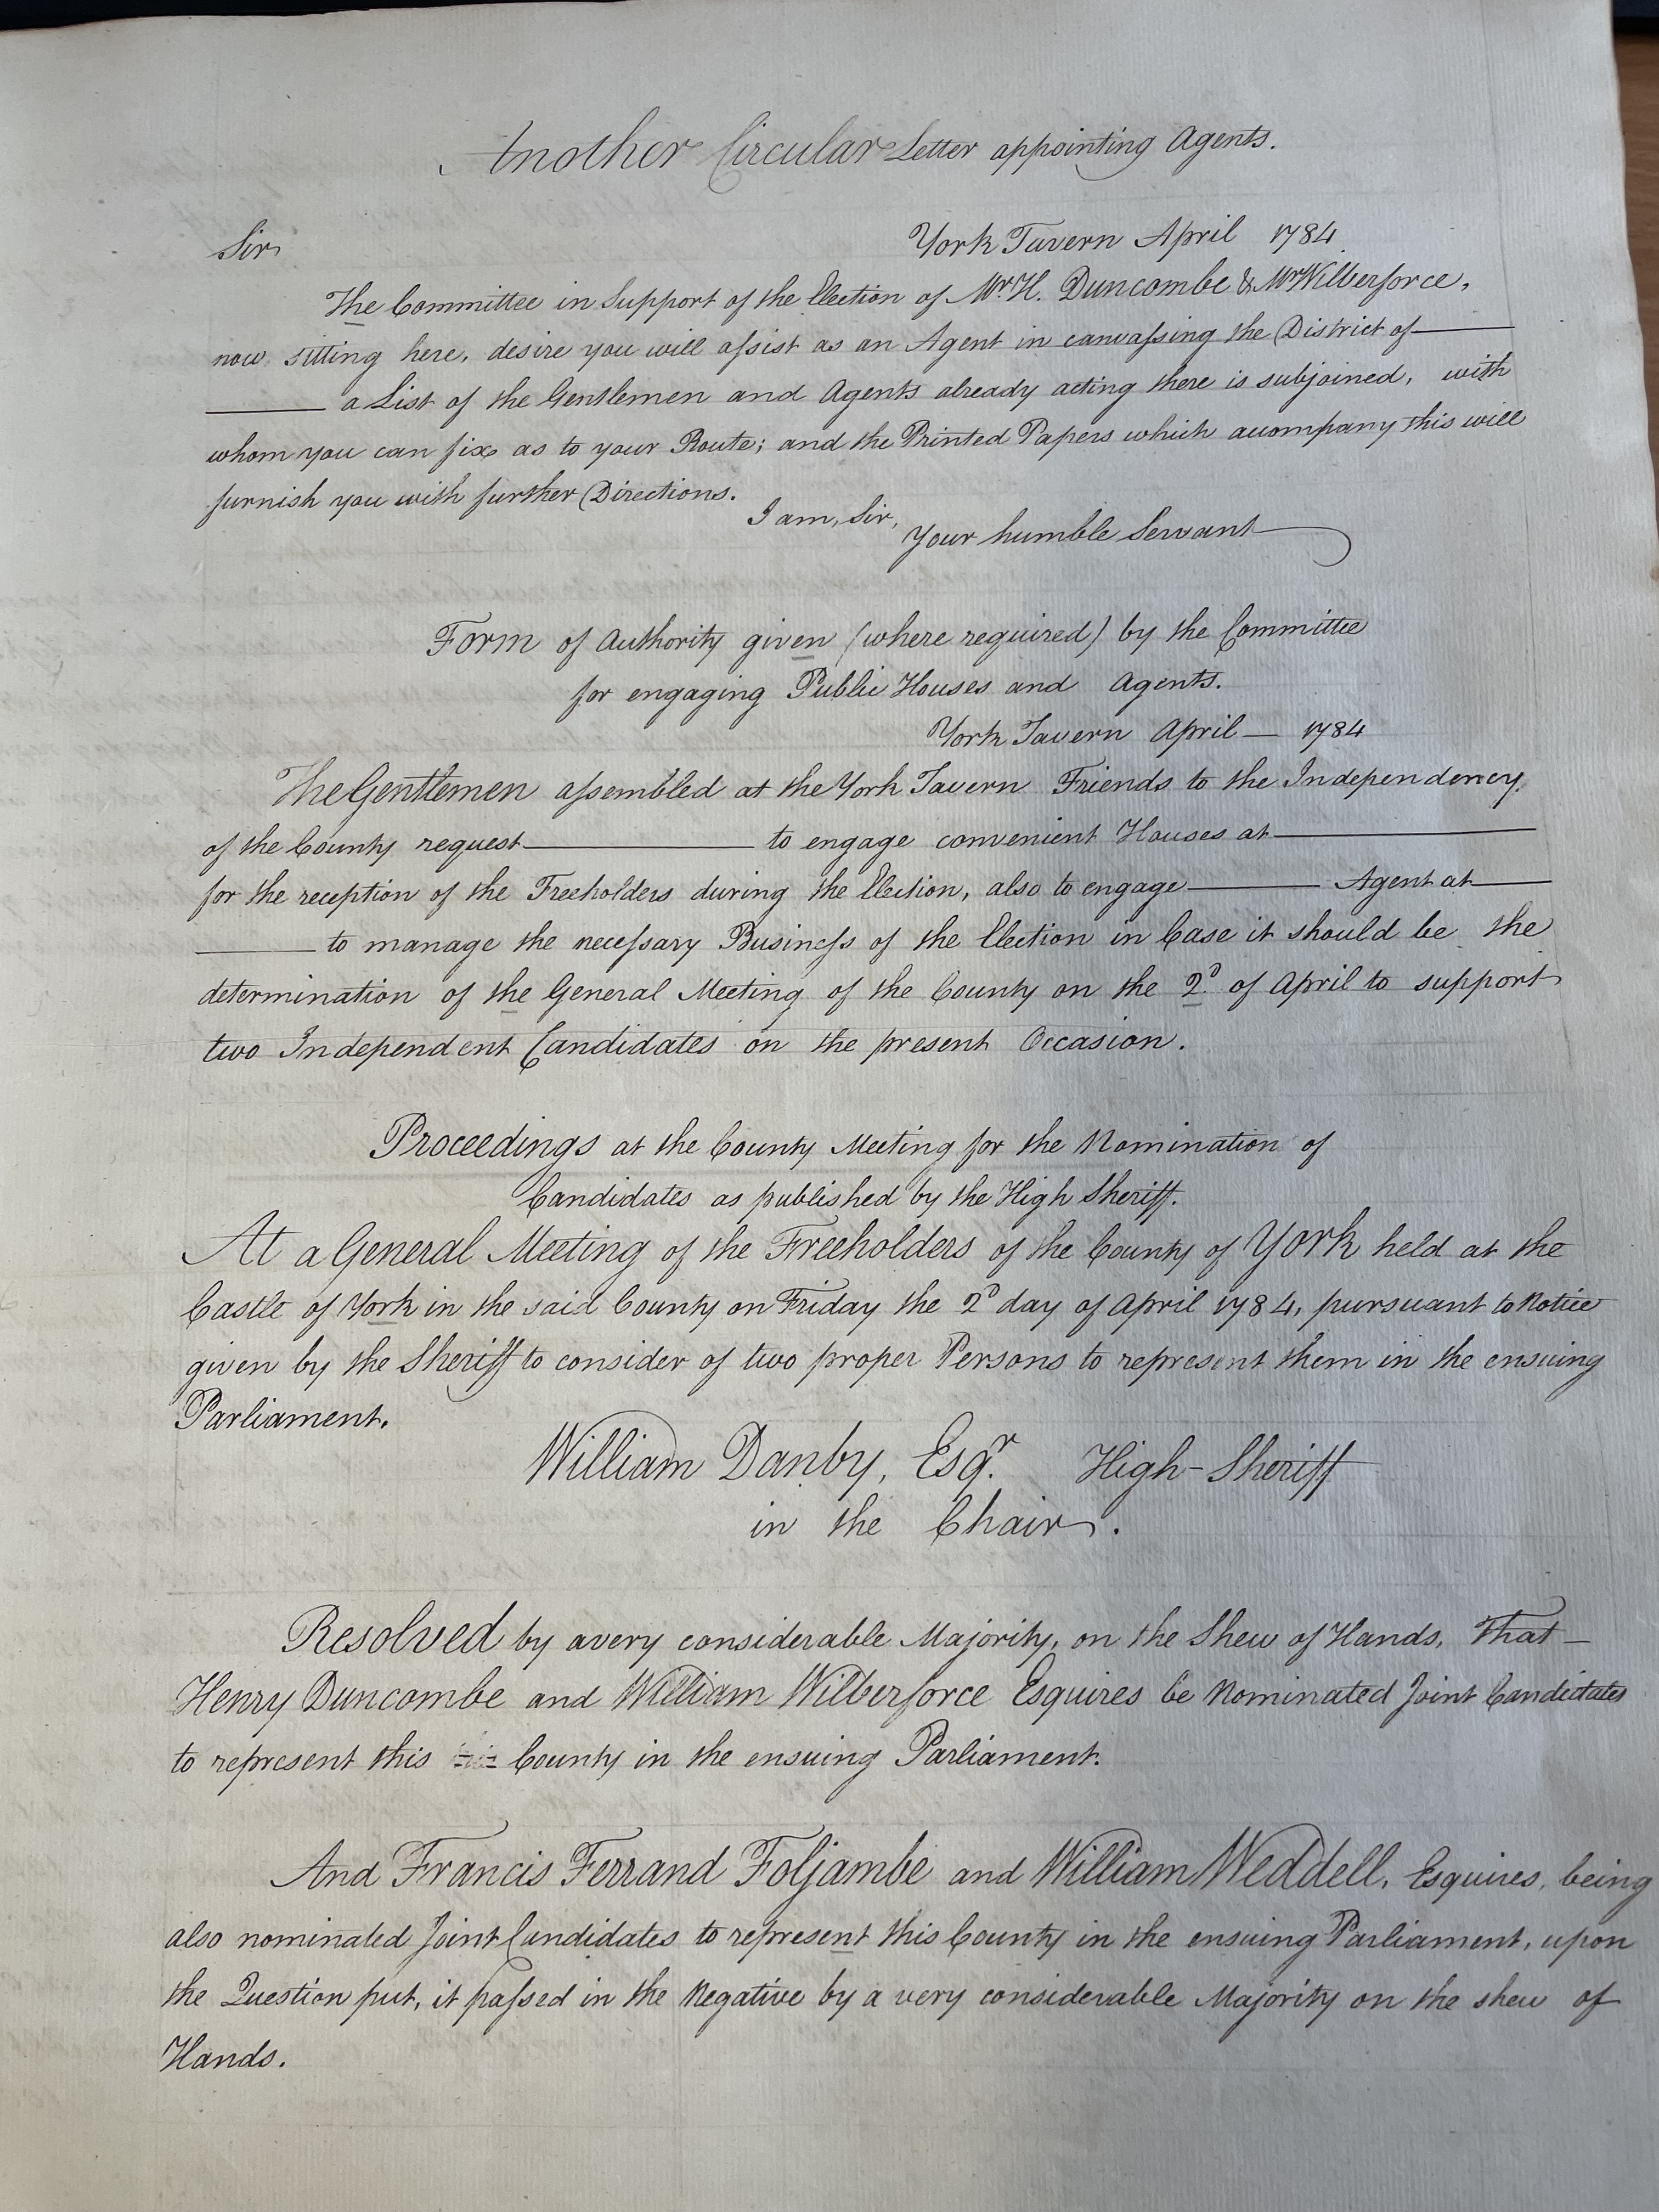 Another Circular Letter appointing Agents.
York Tavern April 1784
Sir
The Committee in Support of the Election of Mr. H. Duncombe & Mr Wilberforce,
now sitting here, desire you will aſsist as an Agent in canvaſsing the District of ———
——— a List of the Gentlemen and Agents already acting there is subjoined, with
whom you can fix as to your Route; and the Printed Papers which accompany this will
furnish you with further Directions.
I am, Sir,
Your humble Servant
Form of Authority given (where required) by the Committee
for engaging Public Houses and Agents.
York Tavern April — 1784
The Gentlemen aſsembled at the York Tavern Friends to the Independency
of the County request ——— to engage convenient Houses at ———
for the reception of the Freeholders during the Election, also to engage ——— Agent at ———
——— to manage the neceſsary Busineſs of the Election in Case it should be the
determination of the General Meeting of the County on the 2.d of April to support
two Independent Candidates on the present Occasion.
Proceedings at the County Meeting for the Nomination of
Candidates as published by the High Sheriff.
At a General Meeting of the Freeholders of the County of York held at the
Castle of York in the said County on Friday the 2d day of April 1784, pursuant to Notice
given by the Sheriff to consider of two proper Persons to represent them in the ensuing
Parliament.
William Danby, Esqr. High-Sheriff
in the Chair.
Resolved by a very considerable Majority, on the Shew of Hands, That —
Henry Duncombe and William Wilberforce Esquires be Nominated Joint Candidates
to represent this County in the ensuing Parliament.
And Francis Ferrand Foljambe and William Weddell, Esquires, being
also nominated Joint Candidates to represent this County in the ensuing Parliament, upon
the Question put, it paſsed in the Negative by a very considerable Majority on the shew of
Hands.